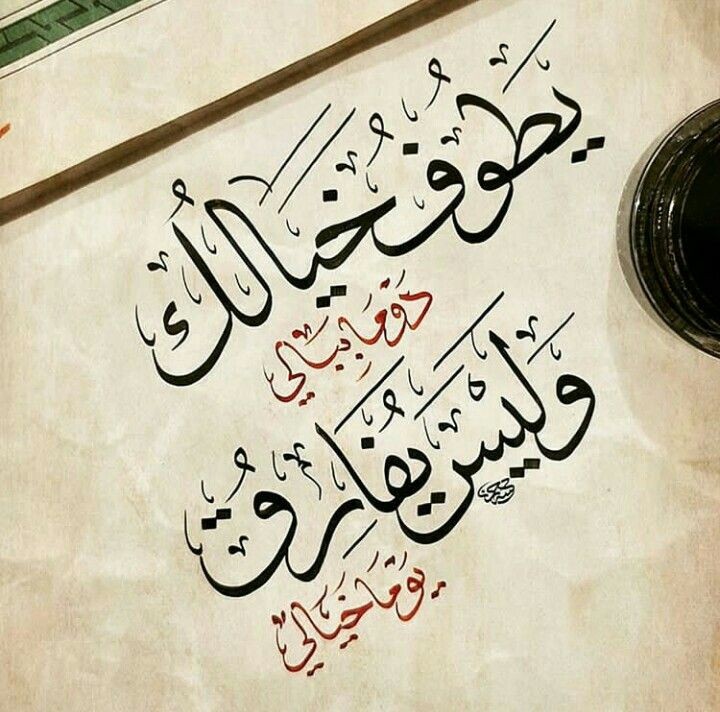 يَطُوفُ خَيَالُكَ
دَوْمًا بِبَالِي
وَلَيْسَ يُفَارِقُ
يَوْمًا خَيَالِي